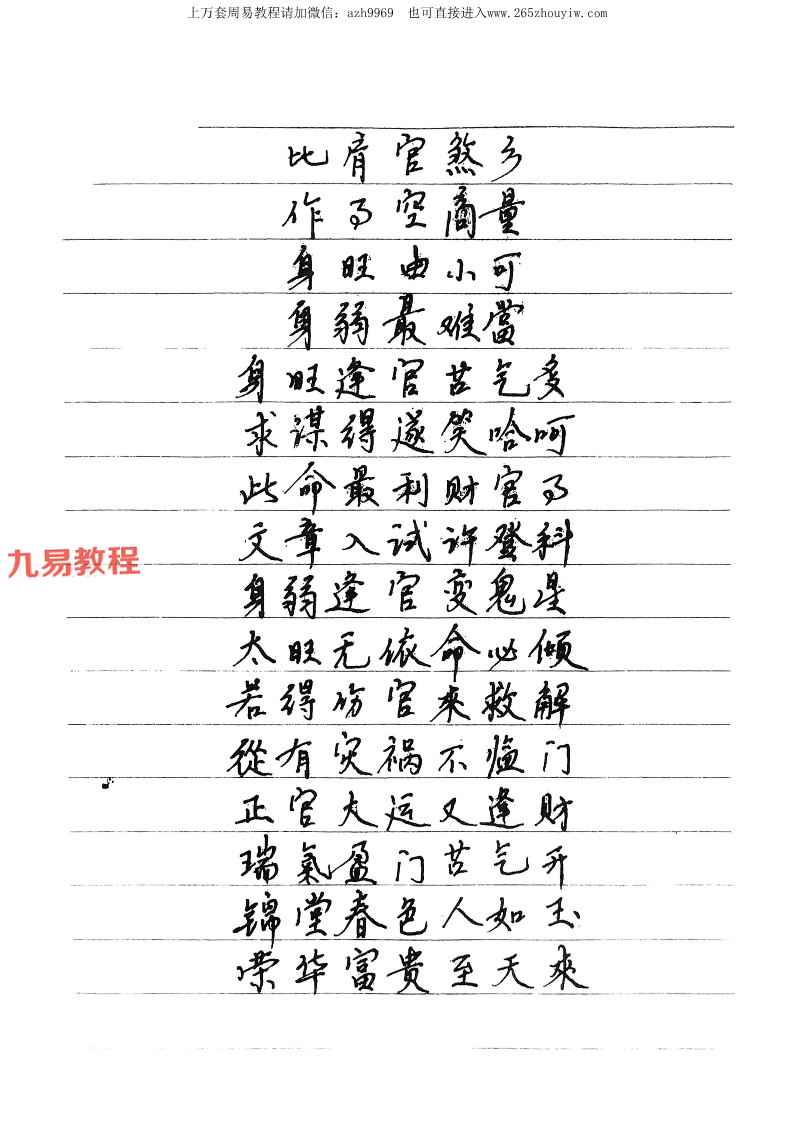 上万套周易教程请加微信：azh9969 也可直接进入www.265zhouyiw.com
比肩官煞
作事空商量
身旺由小可
身弱最难當
身旺逢官苦气多
求谋得遂笑哈呵
此命最利财官事
文章入试许登科
九易教程
身弱逢官变鬼星
太旺无依命必倾
若得伤官来救解
從有灾祸不临门
正官大运又逢财
瑞氣盈门苦气开
锦堂春色人如玉
荣华富貴至天來